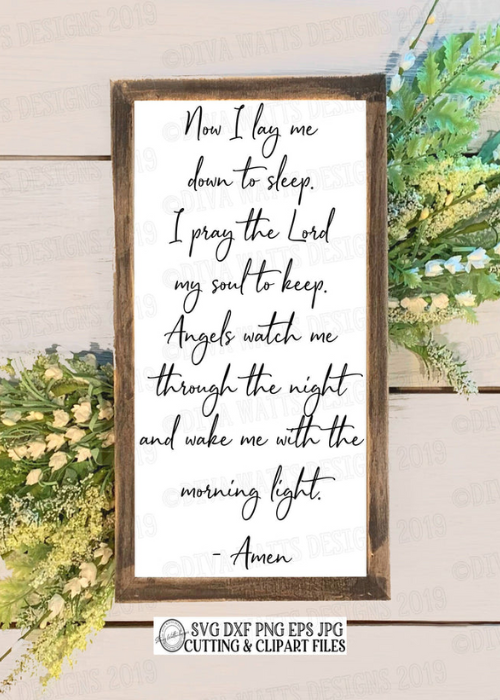 Now I lay me
down to sleep.
I pray the Lord
my soul to keep.
Angels watch me
through the night
and wake me with the
morning light.
- Amen
SVG DXF PNG EPS JPG
CUTTING & CLIPART FILES
©DIVA WATTS DESIGNS 2019